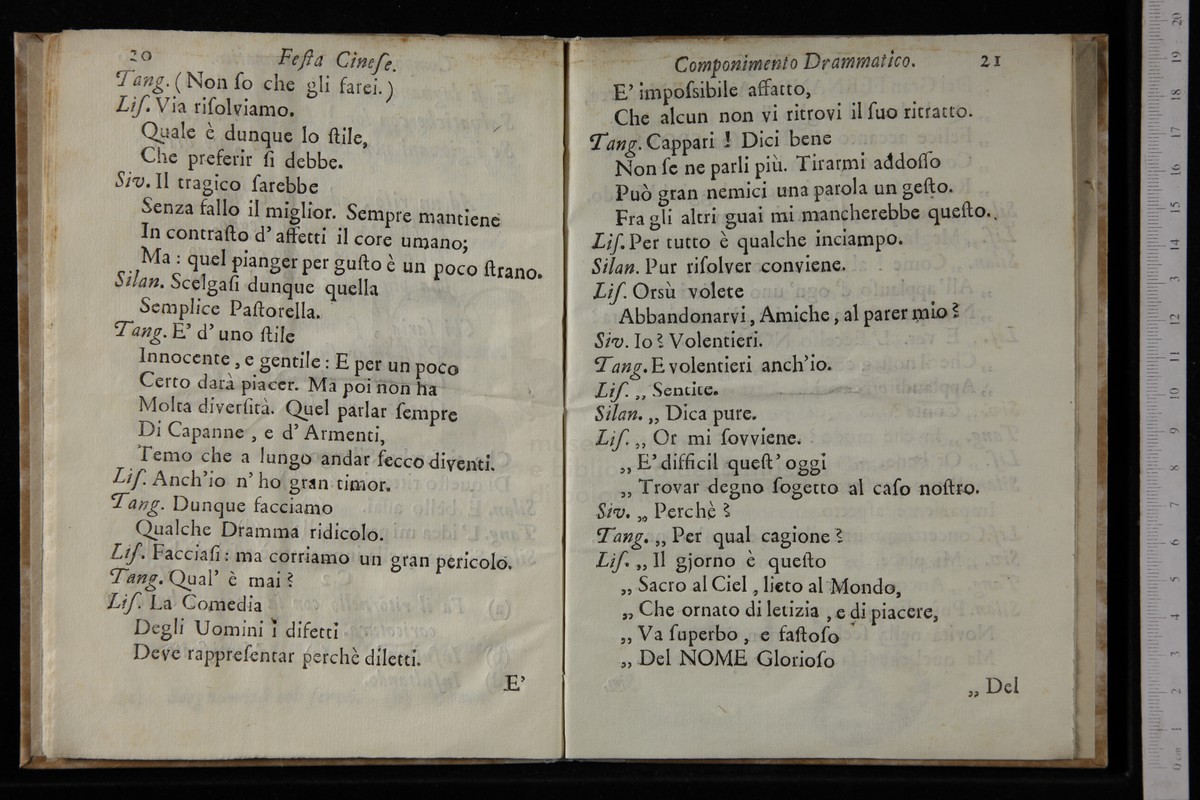 20 Feſta Cineſe.
Tang. (Non ſo che gli farei.)
Liſ. Via riſolviamo.
Quale è dunque lo ſtile,
Che preferir ſi debbe.
Siv. Il tragico ſarebbe
Senza fallo il miglior. Sempre mantiene
In contraſto d' affetti il core umano;
Ma : quel pianger per guſto è un poco ſtrano.
Silan. Scelgaſi dunque quella
Semplice Paſtorella.
Tang. E' d' uno ſtile
Innocente, e gentile : E per un poco
Certo darà piacer. Ma poi non ha
Molta diverſità. Quel parlar ſempre
Di Capanne , e d' Armenti,
Temo che a lungo andar ſecco diventi.
Liſ. Anch'io n' ho gran timor.
Tang. Dunque facciamo
Qualche Dramma ridicolo.
Liſ. Facciaſi : ma corriamo un gran pericolo.
Tang. Qual' è mai ?
Liſ. La Comedia
Degli Uomini i difetti
Deve rappreſentar perchè diletti.
E'
Componimento Drammatico. 21
E' impoſsibile affatto,
Che alcun non vi ritrovi il ſuo ritratto.
Tang. Cappari ! Dici bene
Non ſe ne parli più. Tirarmi addoſſo
Può gran nemici una parola un geſto.
Fra gli altri guai mi mancherebbe queſto.
Liſ. Per tutto è qualche inciampo.
Silan. Pur riſolver conviene.
Liſ. Orsù volete
Abbandonarvi, Amiche, al parer mio ?
Siv. Io ? Volentieri.
Tang. E volentieri anch'io.
Liſ. „ Sentite.
Silan. „ Dica pure.
Liſ. „ Or mi ſovviene.
„ E' difficil queſt' oggi
„ Trovar degno ſogetto al caſo noſtro.
Siv. „ Perchè ?
Tang. „ Per qual cagione ?
Liſ. „ Il gjorno è queſto
„ Sacro al Ciel , lieto al Mondo,
„ Che ornato di letizia , e di piacere,
„ Va ſuperbo , e faſtoſo
„ Del NOME Glorioſo
„ Del